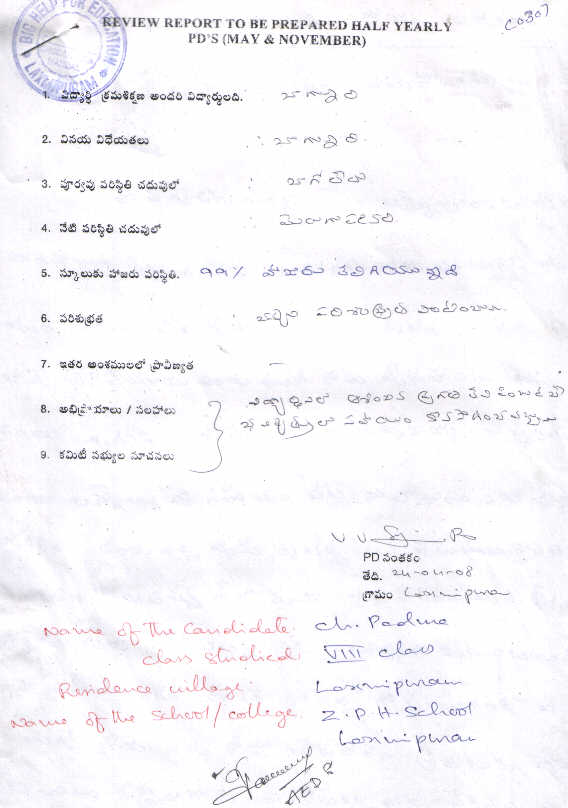 C0307
BIG HELP FOR EDUCATION
REVIEW REPORT TO BE PREPARED HALF YEARLY
PD'S (MAY & NOVEMBER)
1. విద్యార్థి క్రమశిక్షణ అందరి విద్యార్థులది. బాగున్నది
2. వినయ విధేయతలు : బాగున్నది.
3. పూర్వపు పరిస్థితి చదువులో : బాగోలేదు
4. నేటి పరిస్థితి చదువులో : మెరుగుపడినది
5. స్కూలుకు హాజరు పరిస్థితి. 99% హాజరు కలిగియున్నది
6. పరిశుభ్రత :
7. ఇతర అంశములలో ప్రావీణ్యత —
8. అభిప్రాయాలు / సలహాలు
9. కమిటీ సభ్యుల సూచనలు
PD సంతకం
తేది. 24-04-08
గ్రామం Laxmipuram
Name of The Candidate: Ch. Padma
class studied: VIII class
Residence village: Laxmipuram
Name of the school/college: Z.P.H. School
Laxmipuram
AED